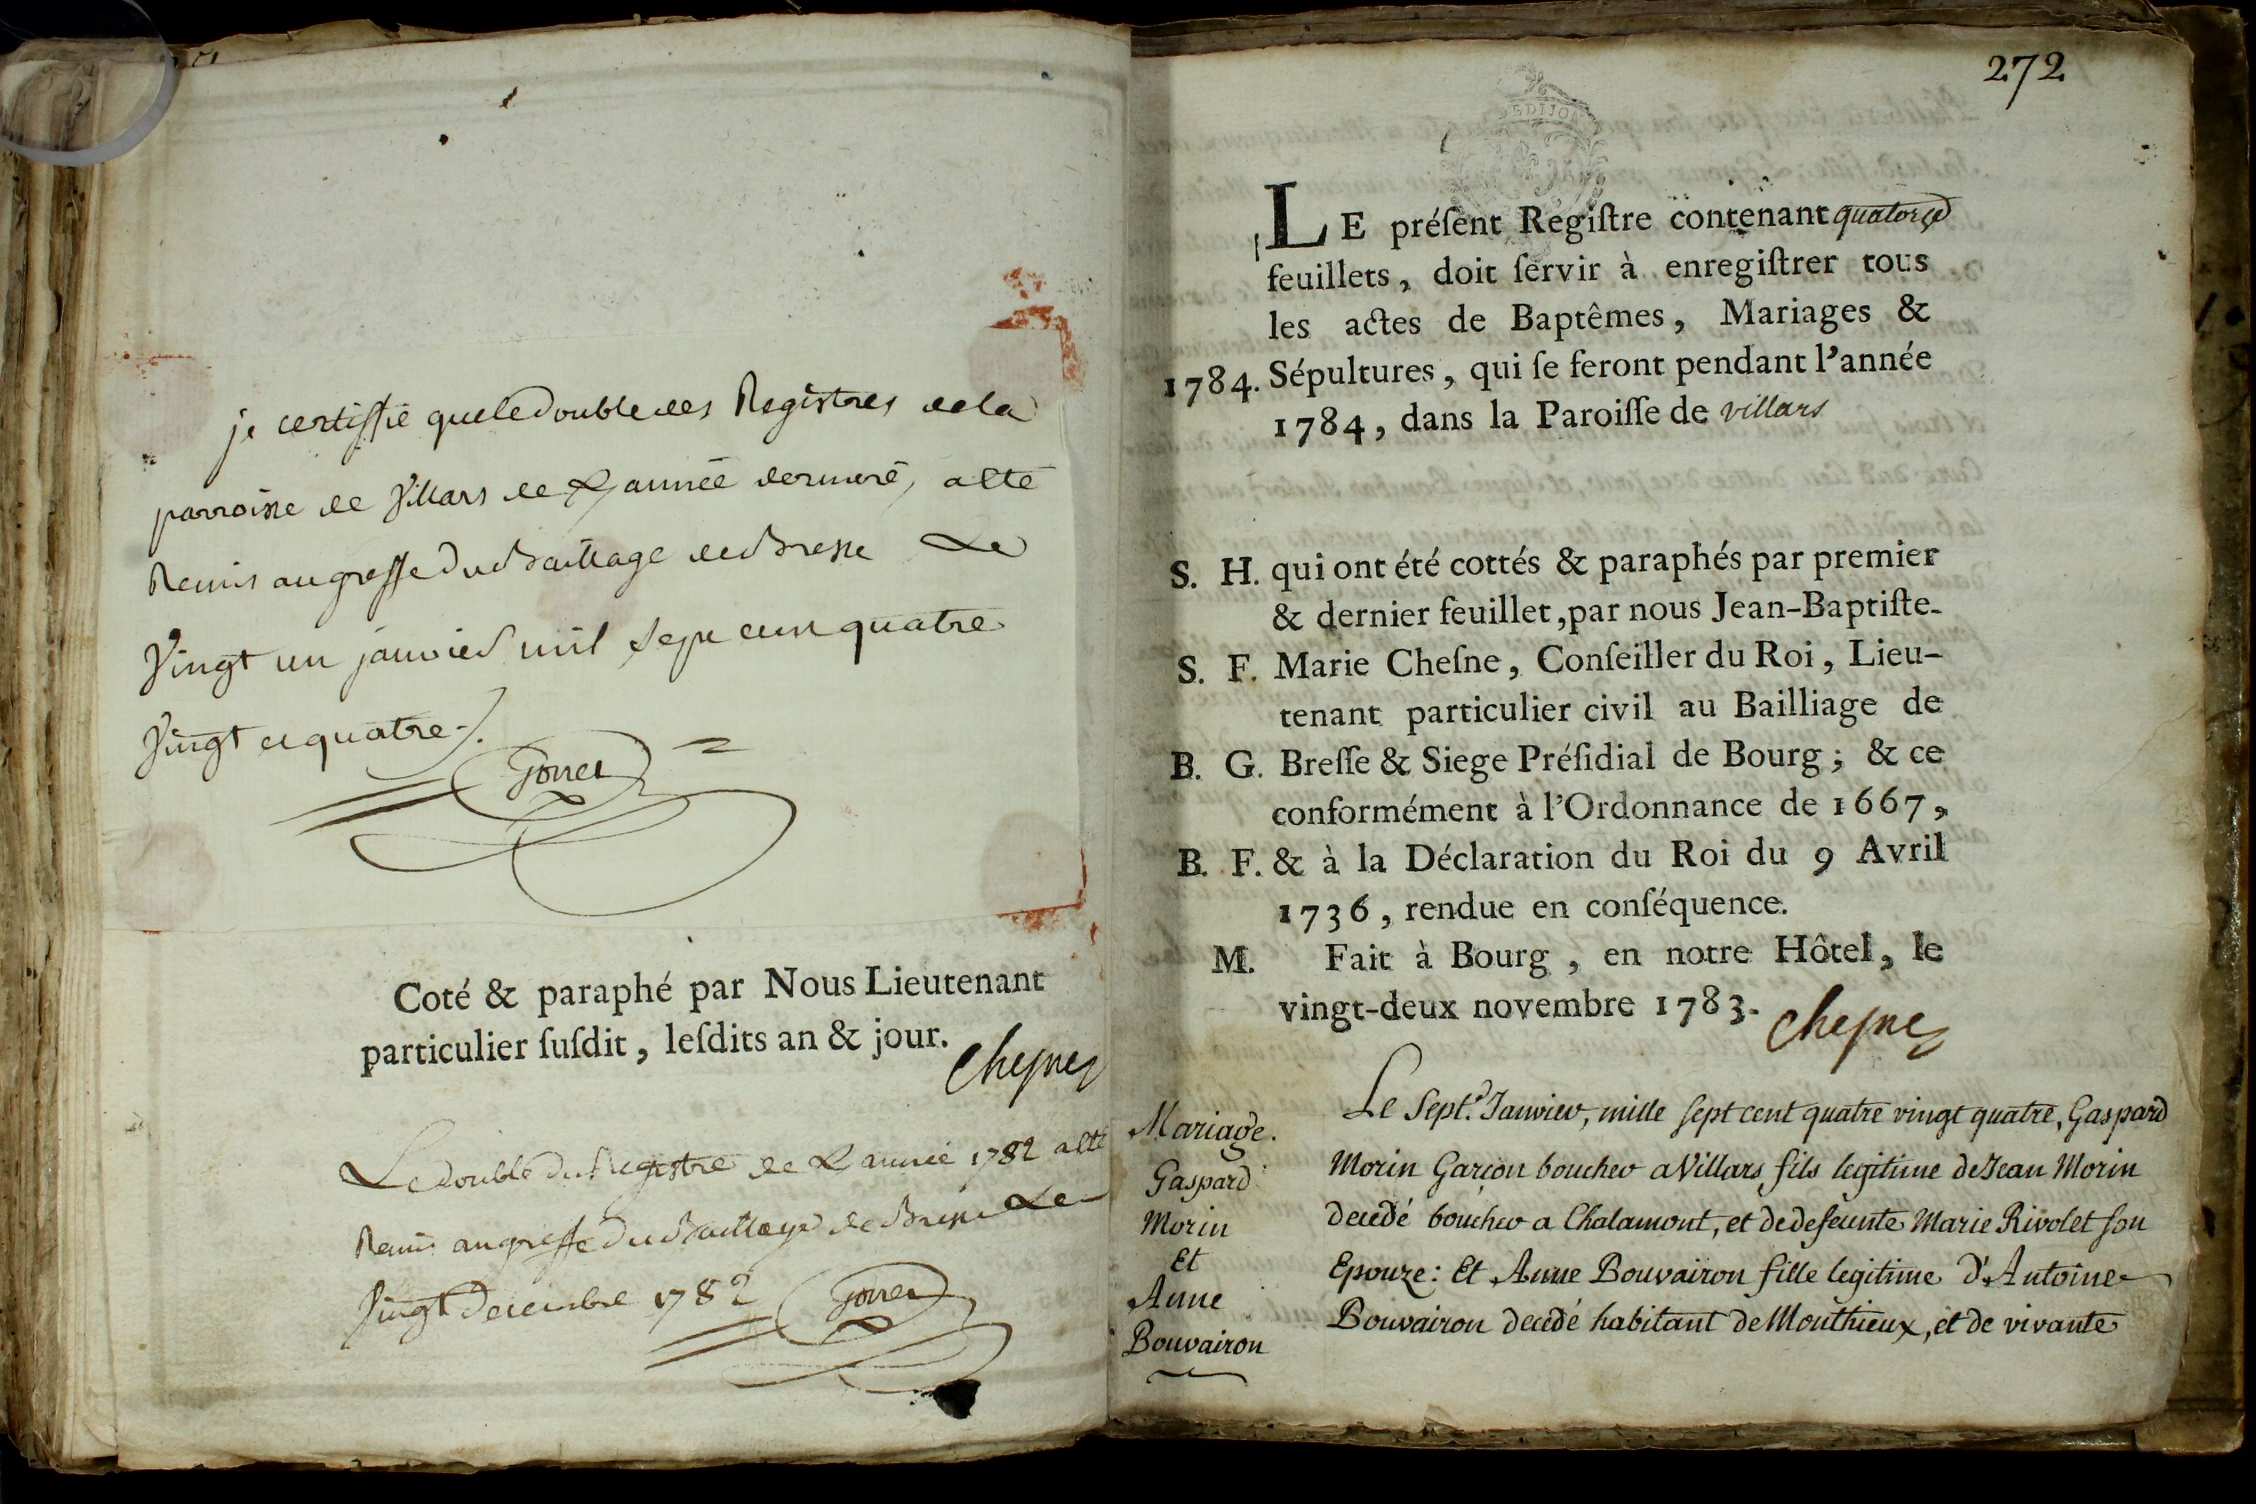 je certiffie que le double des Registres de la
parroisse de Villars de L'année derniere, a ete
Remis au greffe du Bailliage de Bresse Le
Vingt un janvier mil sept cent quatre
Vingt et quatre
Coté & paraphé par Nous Lieutenant
particulier ſuſdit, leſdits an & jour.
Chesne
Le double du Registre de L'année 1782 a eté
Remis au greffe du Bailliage de Bresse Le
Vingt Decembre 1782
272
LE préſent Regiſtre contenant quatorze
feuillets, doit ſervir à enregiſtrer tous
les actes de Baptêmes, Mariages &
1784. Sépultures, qui ſe feront pendant l'année
1784, dans la Paroiſſe de villars
S. H. qui ont été cottés & paraphés par premier
& dernier feuillet, par nous Jean-Baptiſte-
S. F. Marie Cheſne, Conſeiller du Roi, Lieu-
tenant particulier civil au Bailliage de
B. G. Breſſe & Siege Préſidial de Bourg; & ce
conformément à l'Ordonnance de 1667,
B. F. & à la Déclaration du Roi du 9 Avril
1736, rendue en conſéquence.
M. Fait à Bourg, en notre Hôtel, le
vingt-deux novembre 1783.
Chesne
Mariage.
Gaspard
Morin
Et
Anne
Bouvairon
Le Sept. Janvier, mille sept cent quatre vingt quatre, Gaspard
Morin Garçon boucher a Villars, fils legitime de Jean Morin
decedé boucher a Chalamont, et de defeunte Marie Rivolet son
Epouze: Et Anne Bouvairon fille legitime d'Antoine
Bouvairon decedé habitant de Monthieux, et de vivante